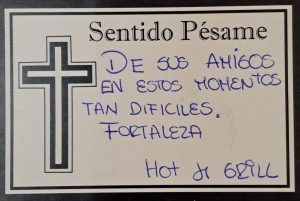 Sentido Pésame
DE SUS AMIGOS
EN ESTOS MOMENTOS
TAN DIFICILES.
FORTALEZA
HOT GRILL